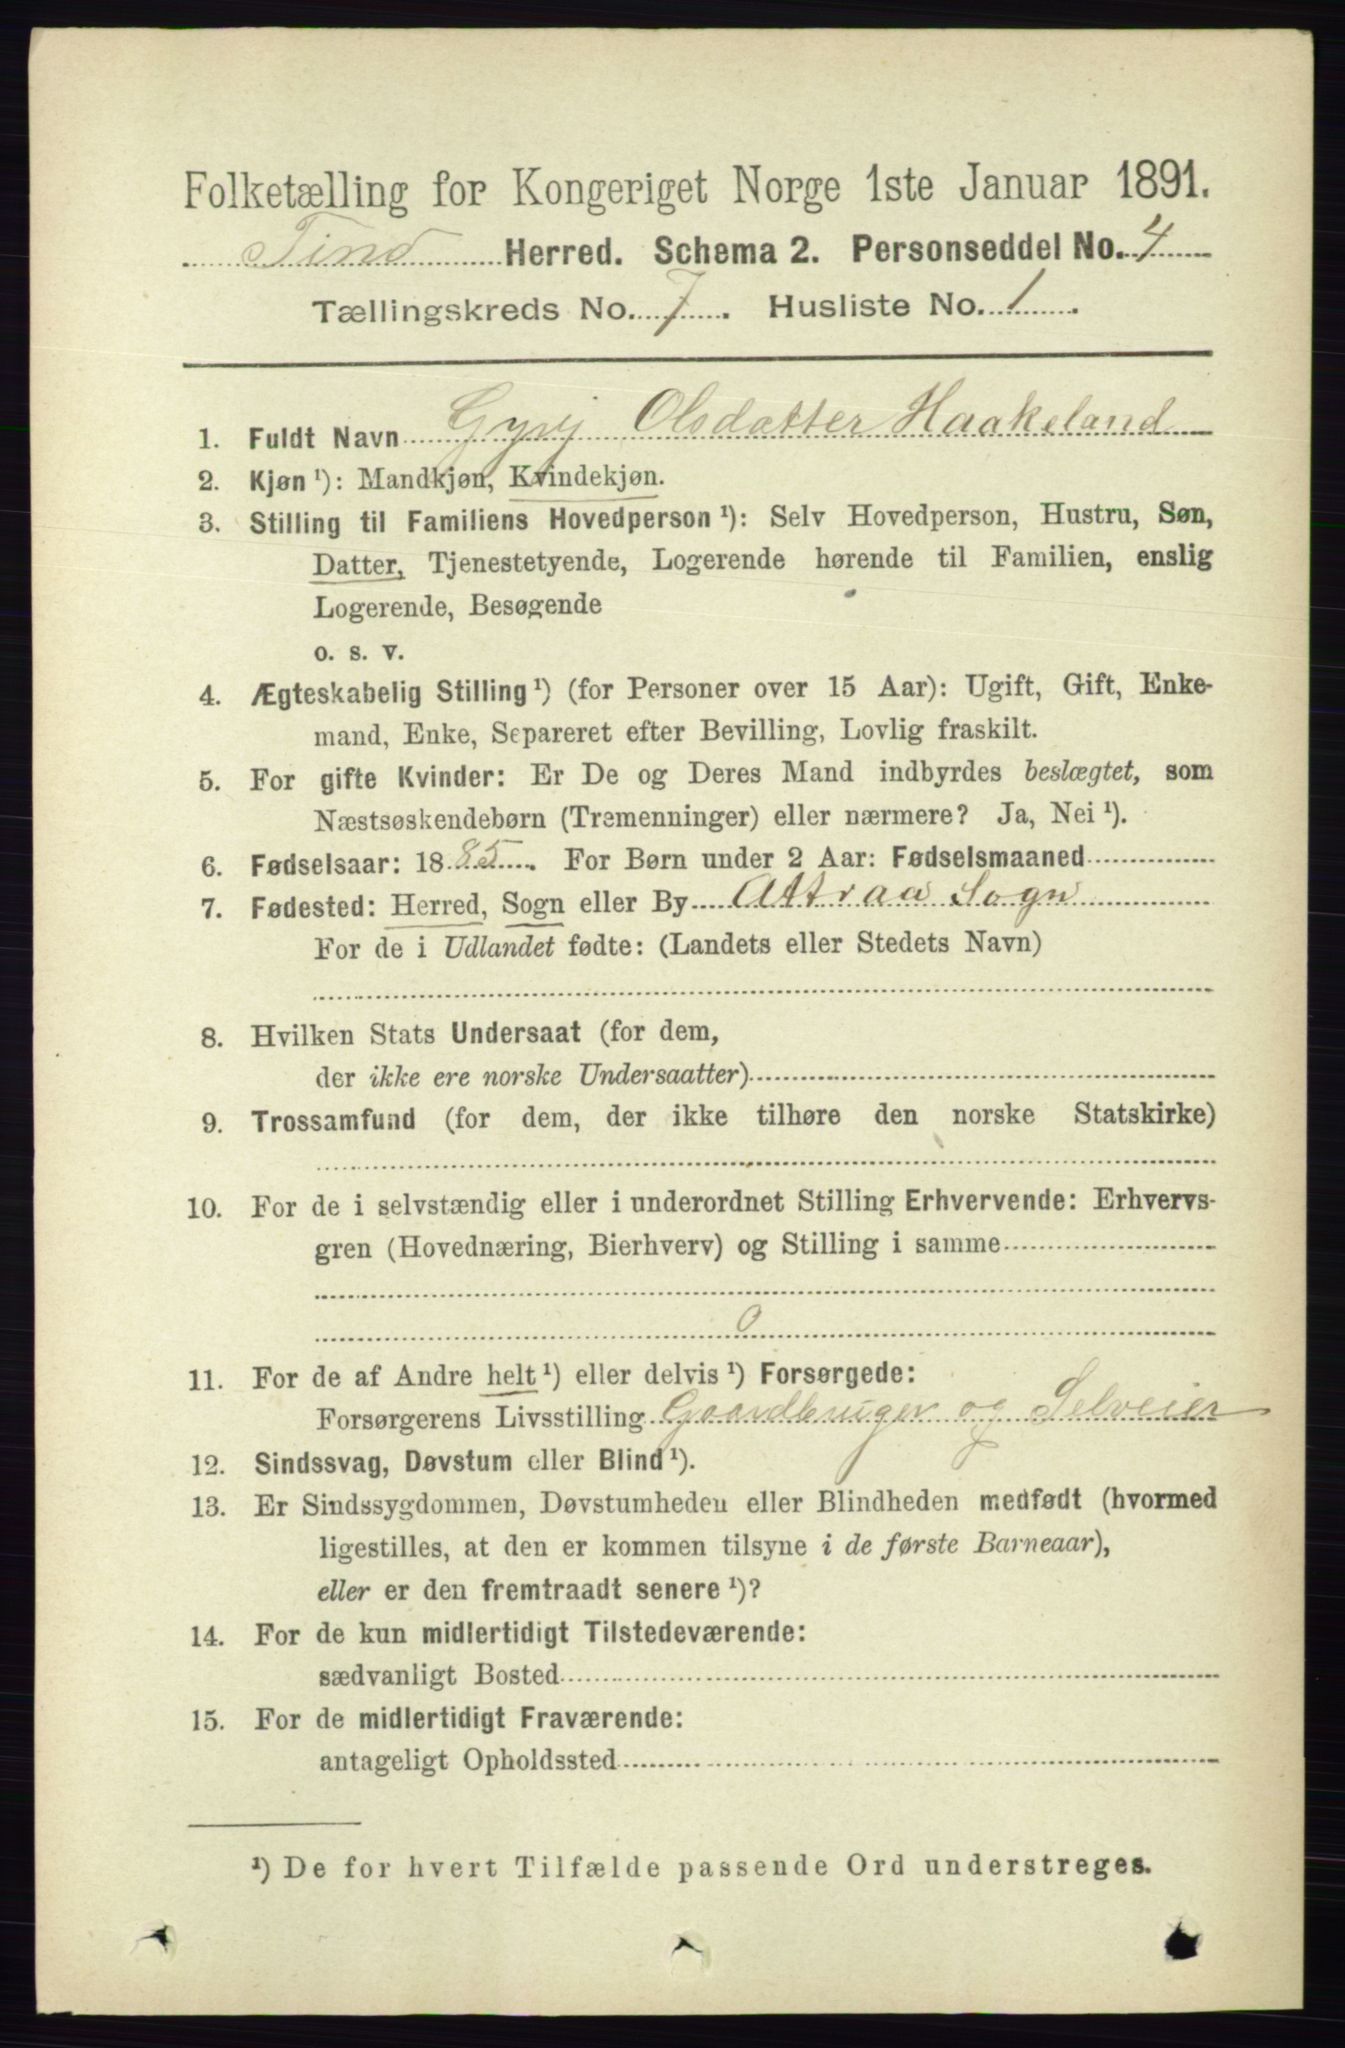 Folketælling for Kongeriget Norge 1ste Januar 1891.
Tind Herred. Schema 2. Personseddel No. 4
Tællingskreds No. 7. Husliste No. 1.
1. Fuldt Navn Gyrj Olsdatter Haakeland
2. Kjøn ¹): Mandkjøn, Kvindekjøn.
3. Stilling til Familiens Hovedperson ¹): Selv Hovedperson, Hustru, Søn,
Datter, Tjenestetyende, Logerende hørende til Familien, enslig
Logerende, Besøgende
o. s. v.
4. Ægteskabelig Stilling ¹) (for Personer over 15 Aar): Ugift, Gift, Enke-
mand, Enke, Separeret efter Bevilling, Lovlig fraskilt.
5. For gifte Kvinder: Er De og Deres Mand indbyrdes beslægtet, som
Næstsøskendebørn (Tremenninger) eller nærmere? Ja, Nei ¹).
6. Fødselsaar: 1885. For Børn under 2 Aar: Fødselsmaaned
7. Fødested: Herred, Sogn eller By Attraa Sogn
For de i Udlandet fødte: (Landets eller Stedets Navn)
8. Hvilken Stats Undersaat (for dem,
der ikke ere norske Undersaatter)
9. Trossamfund (for dem, der ikke tilhøre den norske Statskirke)
10. For de i selvstændig eller i underordnet Stilling Erhvervende: Erhvervs-
gren (Hovednæring, Bierhverv) og Stilling i samme
0
11. For de af Andre helt ¹) eller delvis ¹) Forsørgede:
Forsørgerens Livsstilling Gaardbruger og Selveier
12. Sindssvag, Døvstum eller Blind ¹).
13. Er Sindssygdommen, Døvstumheden eller Blindheden medfødt (hvormed
ligestilles, at den er kommen tilsyne i de første Barneaar),
eller er den fremtraadt senere ¹)?
14. For de kun midlertidigt Tilstedeværende:
sædvanligt Bosted
15. For de midlertidigt Fraværende:
antageligt Opholdssted
¹) De for hvert Tilfælde passende Ord understreges.